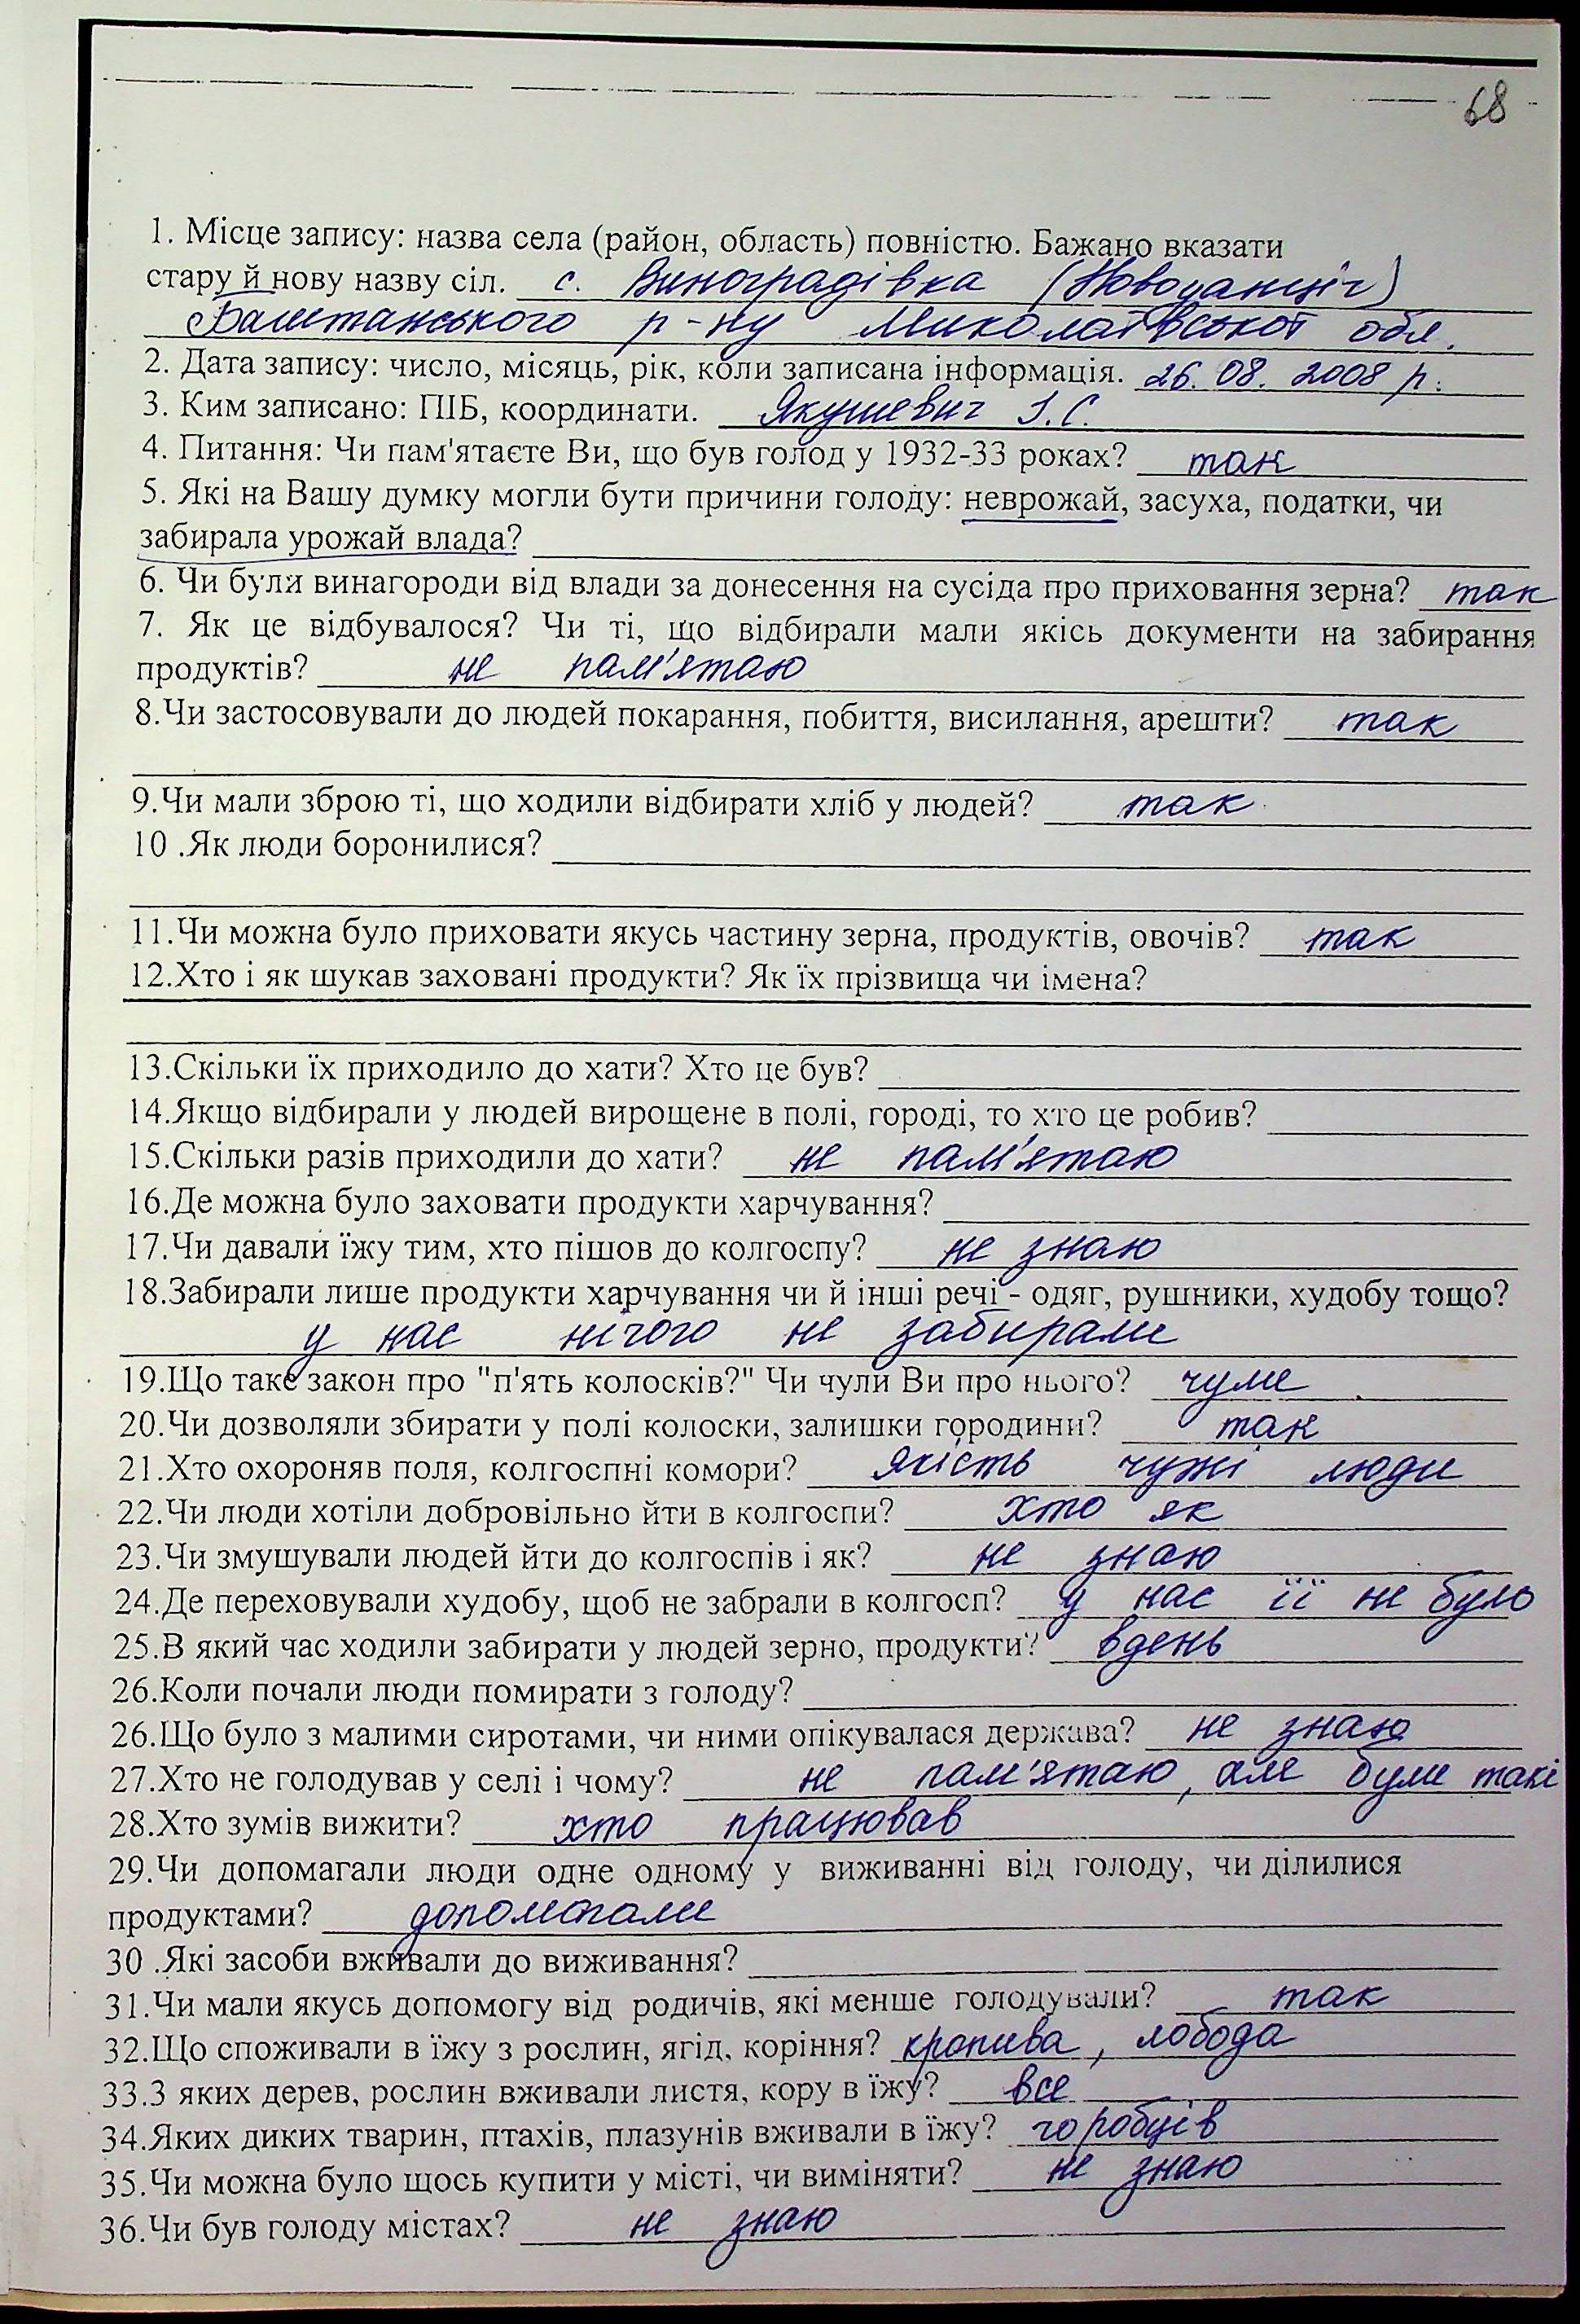 68
1. Місце запису: назва села (район, область) повністю. Бажано вказати
стару й нову назву сіл. с. Виноградівка (Новоданціг)
Баштанського р-ну Миколаївської обл.
2. Дата запису: число, місяць, рік, коли записана інформація. 26.08.2008 р.
3. Ким записано: ПІБ, координати. Якушевич І.С.
4. Питання: Чи пам'ятаєте Ви, що був голод у 1932-33 роках? так
5. Які на Вашу думку могли бути причини голоду: неврожай, засуха, податки, чи
забирала урожай влада?
6. Чи були винагороди від влади за донесення на сусіда про приховання зерна? так
7. Як це відбувалося? Чи ті, що відбирали мали якісь документи на забирання
продуктів? не пам'ятаю
8.Чи застосовували до людей покарання, побиття, висилання, арешти? так
9.Чи мали зброю ті, що ходили відбирати хліб у людей? так
10 .Як люди боронилися?
11.Чи можна було приховати якусь частину зерна, продуктів, овочів? так
12.Хто і як шукав заховані продукти? Як їх прізвища чи імена?
13.Скільки їх приходило до хати? Хто це був?
14.Якщо відбирали у людей вирощене в полі, городі, то хто це робив?
15.Скільки разів приходили до хати? не пам'ятаю
16.Де можна було заховати продукти харчування?
17.Чи давали їжу тим, хто пішов до колгоспу? не знаю
18.Забирали лише продукти харчування чи й інші речі - одяг, рушники, худобу тощо?
у нас нічого не забирали
19.Що таке закон про "п'ять колосків?" Чи чули Ви про нього? чули
20.Чи дозволяли збирати у полі колоски, залишки городини? так
21.Хто охороняв поля, колгоспні комори? якість чужі люди
22.Чи люди хотіли добровільно йти в колгоспи? хто як
23.Чи змушували людей йти до колгоспів і як? не знаю
24.Де переховували худобу, щоб не забрали в колгосп? у нас її не було
25.В який час ходили забирати у людей зерно, продукти? вдень
26.Коли почали люди помирати з голоду?
26.Що було з малими сиротами, чи ними опікувалася держава? не знаю
27.Хто не голодував у селі і чому? не пам'ятаю, але були такі
28.Хто зумів вижити? хто працював
29.Чи допомагали люди одне одному у виживанні від голоду, чи ділилися
продуктами? допомагали
30 .Які засоби вживали до виживання?
31.Чи мали якусь допомогу від родичів, які менше голодували? так
32.Що споживали в їжу з рослин, ягід, коріння? кропива, лобода
33.З яких дерев, рослин вживали листя, кору в їжу? все
34.Яких диких тварин, птахів, плазунів вживали в їжу? горобців
35.Чи можна було щось купити у місті, чи виміняти? не знаю
36.Чи був голоду містах? не знаю